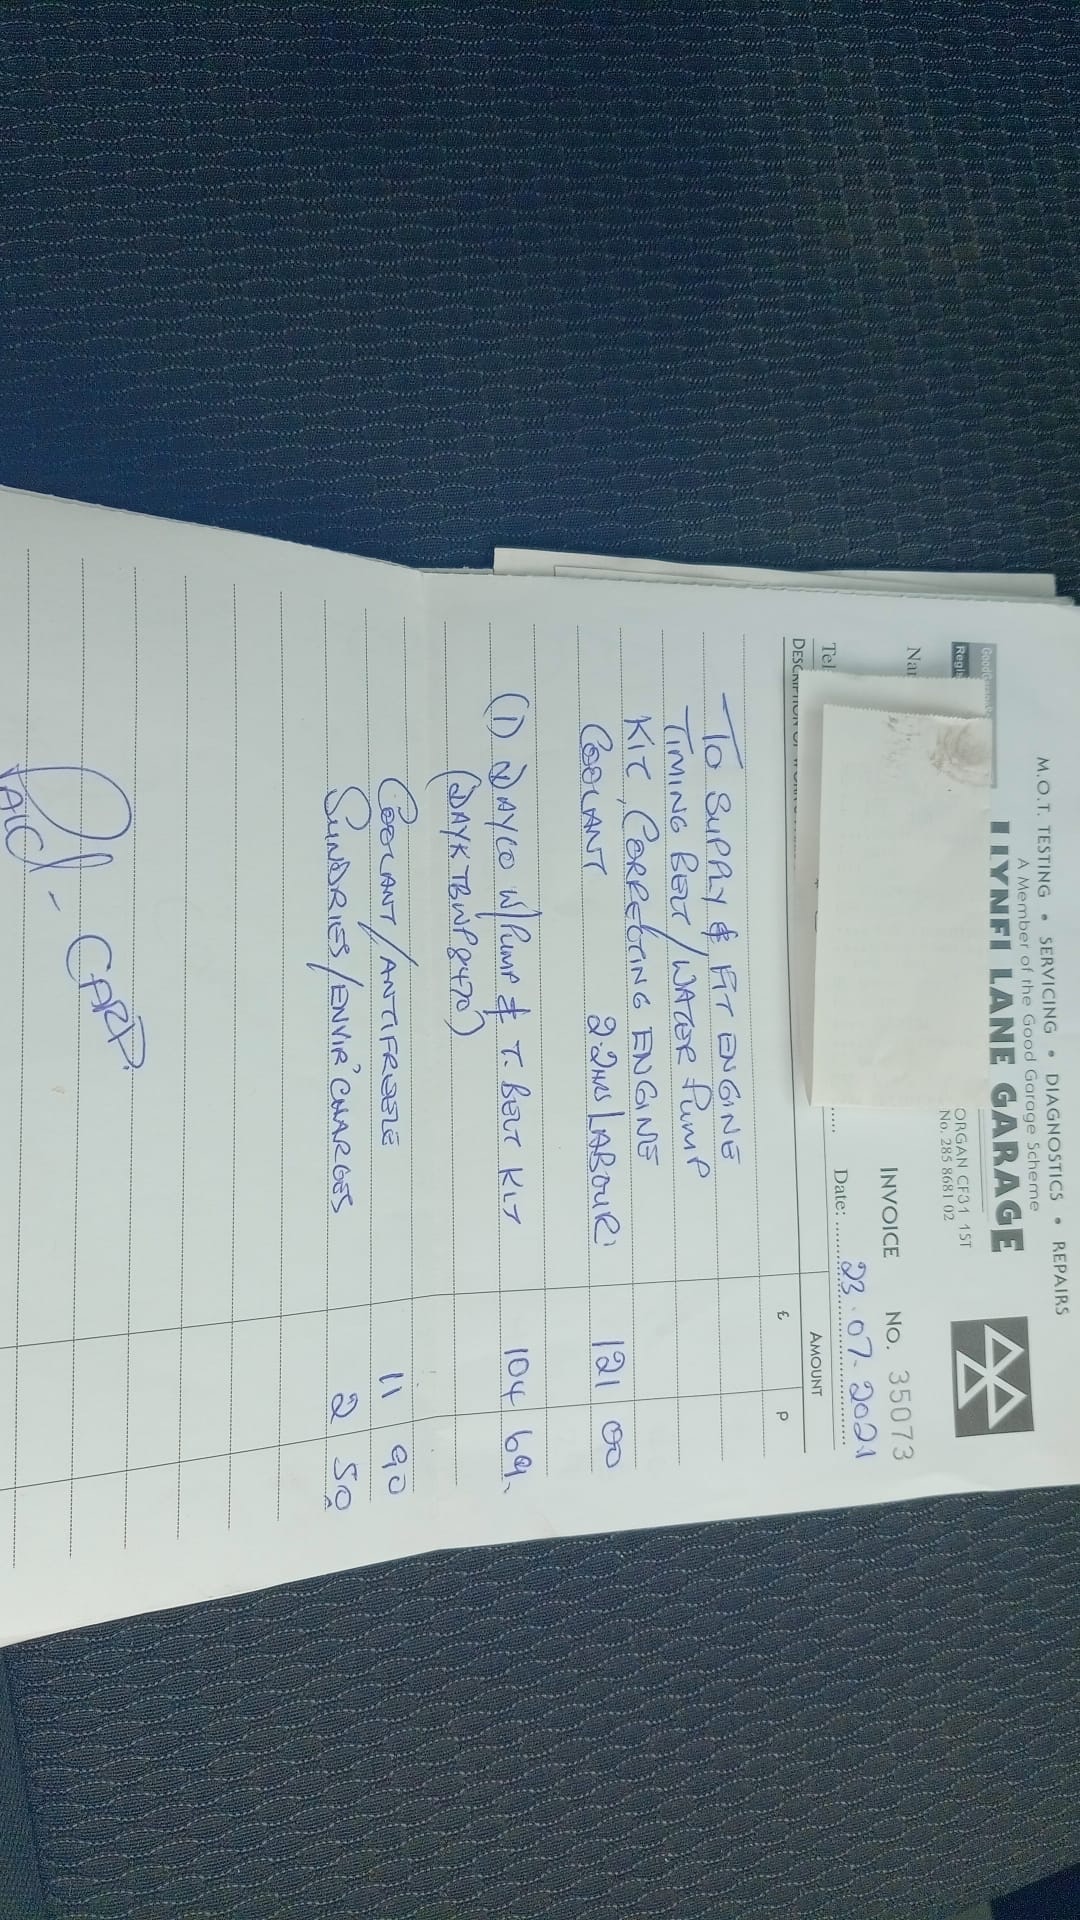 M.O.T. TESTING • SERVICING • DIAGNOSTICS • REPAIRS
A Member of the Good Garage Scheme
LLYNFI LANE GARAGE
ORGAN CF31 1ST
No. 285 8681 02
INVOICE No. 35073
Date: 23.07.2021
Tel
AMOUNT
£ P
TO SUPPLY & FIT ENGINE
TIMING BELT/WATER PUMP
KIT, CORRECTING ENGINE
COOLANT 2.2HRS LABOUR 121 00
(1) DAYCO W/PUMP & T. BELT KIT 104 69
(DAYKTBWP8470)
COOLANT/ANTIFREEZE 11 90
SUNDRIES/ENVIR' CHARGES 2 50
PAID - CARD.